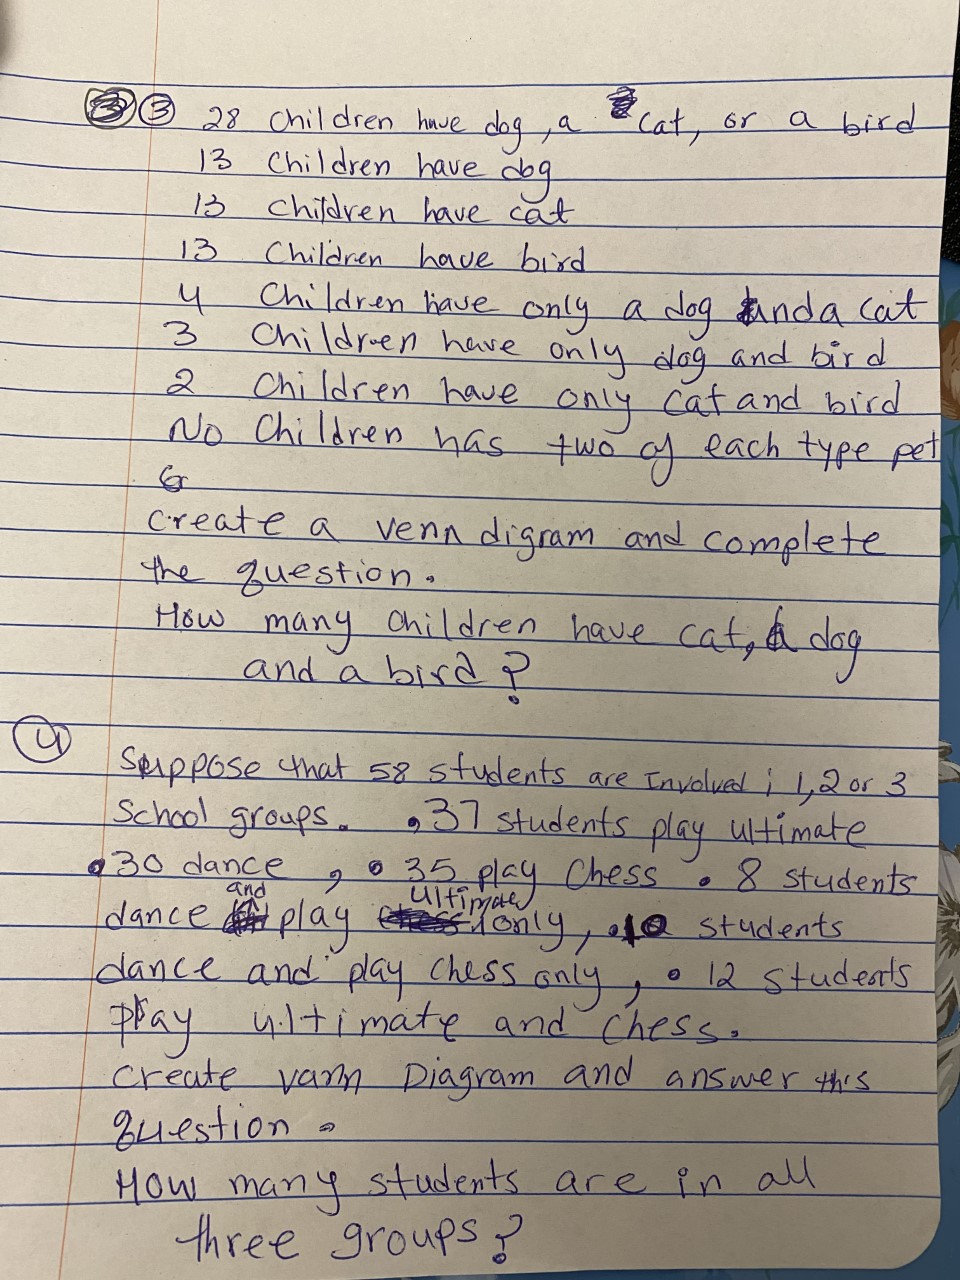 ③ 28 Children have dog, a cat, or a bird
13 Children have dog
13 children have cat
13 Children have bird
4 Children have only a dog and a cat
3 Children have only dog and bird
2 Children have only cat and bird
No Children has two of each type pet
Create a venn digram and complete
the question.
How many children have cat, dog
and a bird?
④
Suppose that 58 students are Involved i 1,2 or 3
School groups. • 37 students play ultimate
• 30 dance, • 35 play Chess • 8 students
dance and play Ultimate only, • 10 students
dance and play chess only, • 12 students
play ultimate and chess.
Create vann Diagram and answer this
question.
How many students are in all
three groups?